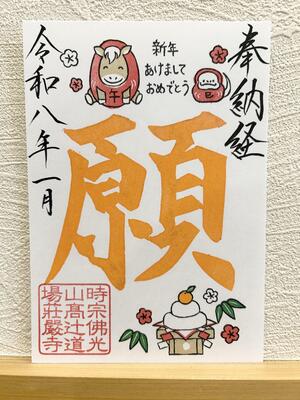 奉納経
新年
あけまして
おめでとう
午
巳
願
令和八年一月
時宗佛光
山髙辻道
場莊嚴寺